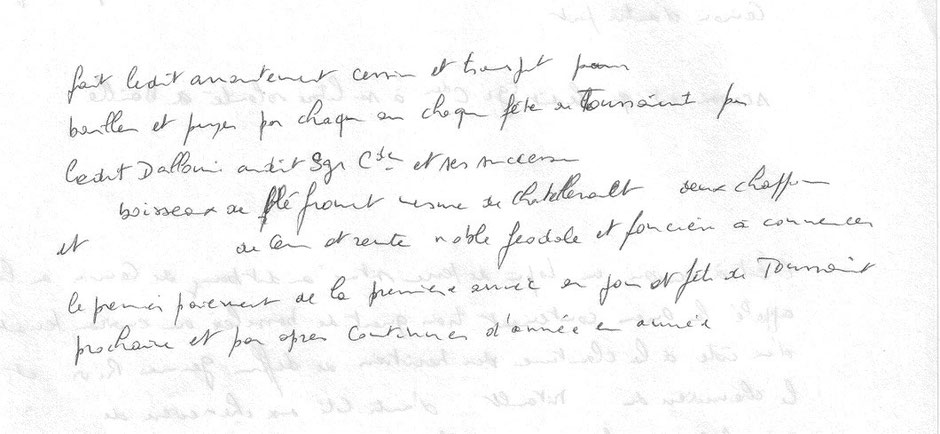 fait ledit arrentement cession et transport pour
bailler et payer par chaque an chaque fête de Toussaint par
ledit Dallouin audit Sgr Cte et ses success
boisseaux de blé froment mesure de Chatellerault deux chappons
et de cens et rente noble feodale et foncière à commencer
le premier paiement de la première année en jour et fête de Toussaint
prochaine et par apres continuer d'année en année